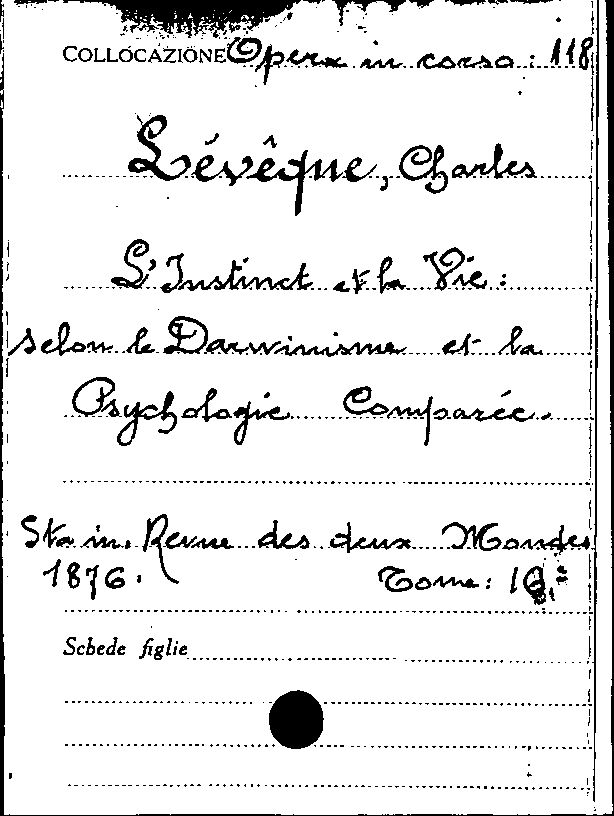 COLLOCAZIONE Opera in corso: 118
Lévêque, Charles
L'Instinct et la Vie:
selon le Darwinisme et la
Psychologie Comparée.
Sta in. Revue des deux Mondes
1876. Tome:
Schede figlie